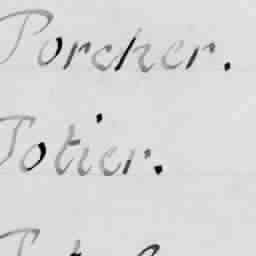 Porcher.
Potier.